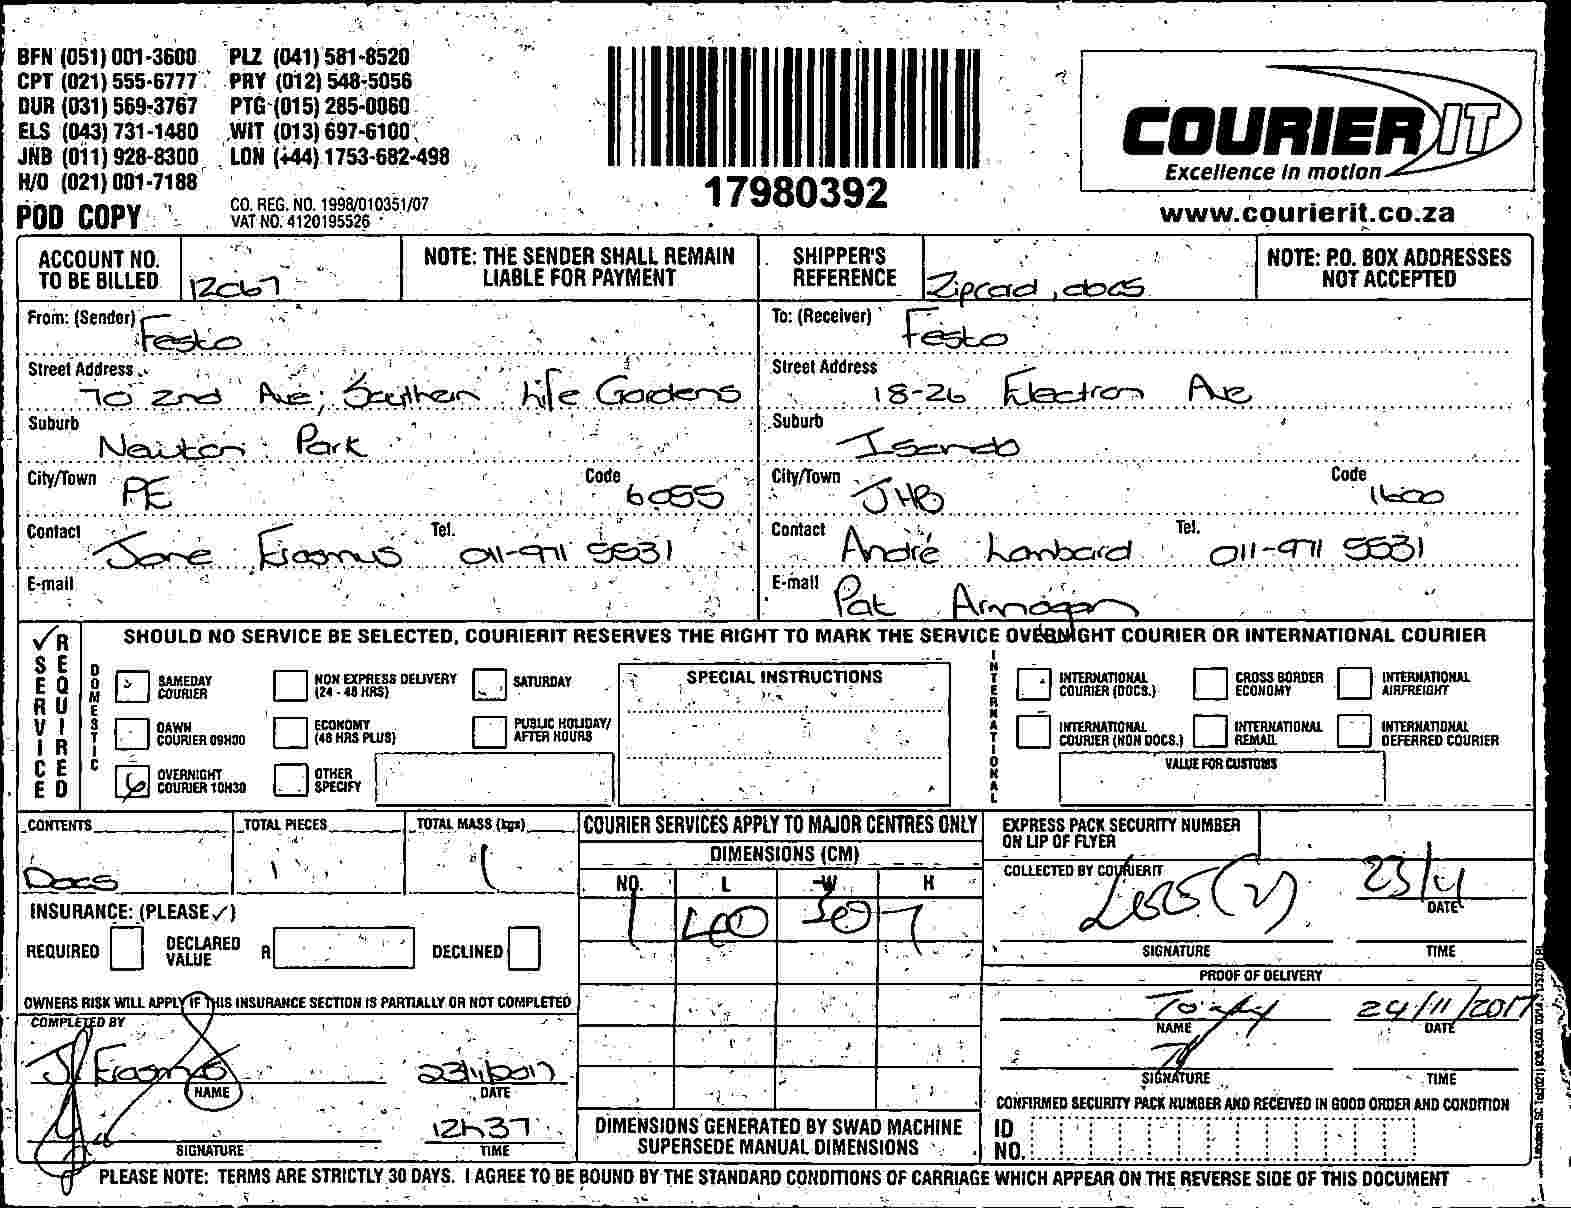 BFN (051) 001-3600 PLZ (041) 581-8520
CPT (021) 555-6777 PRY (012) 548-5056
DUR (031) 569-3767 PTG (015) 285-0060
ELS (043) 731-1480 WIT (013) 697-6100
JNB (011) 928-8300 LON (+44) 1753-682-498
H/O (021) 001-7188
POD COPY
CO. REG. NO. 1998/010351/07
VAT NO. 4120195526
17980392
COURIER IT
Excellence in motion
www.courierit.co.za
ACCOUNT NO. TO BE BILLED
NOTE: THE SENDER SHALL REMAIN LIABLE FOR PAYMENT
SHIPPER'S REFERENCE Zipcard, docs
NOTE: P.O. BOX ADDRESSES NOT ACCEPTED
From: (Sender) Festo
Street Address 70 2nd Ave, Southern Life Gardens
Suburb Newton Park
City/Town PE Code 6055
Contact Jane Erasmus Tel. 011-971 5531
E-mail
To: (Receiver) Festo
Street Address 18-26 Electron Ave
Suburb Isando
City/Town JHB Code 1600
Contact André Lombard Tel. 011-971 5531
E-mail Pat Armogan
✓ SERVICE REQUIRED
SHOULD NO SERVICE BE SELECTED, COURIERIT RESERVES THE RIGHT TO MARK THE SERVICE OVERNIGHT COURIER OR INTERNATIONAL COURIER
DOMESTIC
SAMEDAY COURIER
NON EXPRESS DELIVERY (24 - 48 HRS)
SATURDAY
DAWN COURIER 09H00
ECONOMY (48 HRS PLUS)
PUBLIC HOLIDAY/ AFTER HOURS
OVERNIGHT COURIER 10H30
OTHER SPECIFY
SPECIAL INSTRUCTIONS
INTERNATIONAL
INTERNATIONAL COURIER (DOCS.)
CROSS BORDER ECONOMY
INTERNATIONAL AIRFREIGHT
INTERNATIONAL COURIER (NON DOCS.)
INTERNATIONAL REMAIL
INTERNATIONAL DEFERRED COURIER
VALUE FOR CUSTOMS
CONTENTS TOTAL PIECES TOTAL MASS (kgs)
Docs 1 1
INSURANCE: (PLEASE ✓)
REQUIRED DECLARED VALUE R DECLINED
OWNERS RISK WILL APPLY IF THIS INSURANCE SECTION IS PARTIALLY OR NOT COMPLETED
COMPLETED BY
J Erasmus 23/11/2017
NAME DATE
12h37
SIGNATURE TIME
COURIER SERVICES APPLY TO MAJOR CENTRES ONLY
DIMENSIONS (CM)
NO. L W H
1 40 30 1
DIMENSIONS GENERATED BY SWAD MACHINE SUPERSEDE MANUAL DIMENSIONS
EXPRESS PACK SECURITY NUMBER ON LIP OF FLYER
COLLECTED BY COURIERIT
23/11
DATE
SIGNATURE TIME
PROOF OF DELIVERY
24/11/2017
NAME DATE
SIGNATURE TIME
CONFIRMED SECURITY PACK NUMBER AND RECEIVED IN GOOD ORDER AND CONDITION
ID NO.
PLEASE NOTE: TERMS ARE STRICTLY 30 DAYS. I AGREE TO BE BOUND BY THE STANDARD CONDITIONS OF CARRIAGE WHICH APPEAR ON THE REVERSE SIDE OF THIS DOCUMENT